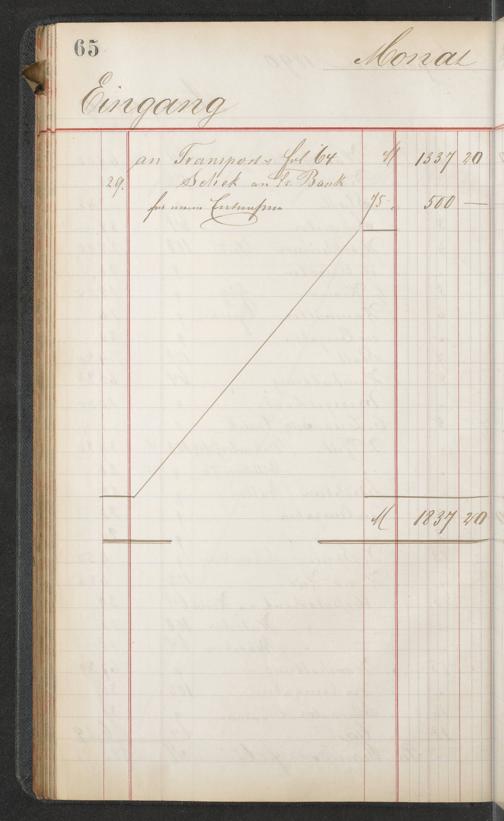 65
Monat
Eingang
an Transport v. fol 64 M 1337 20
29. Scheck an Bank
für 75. 500 —
M 1837 20